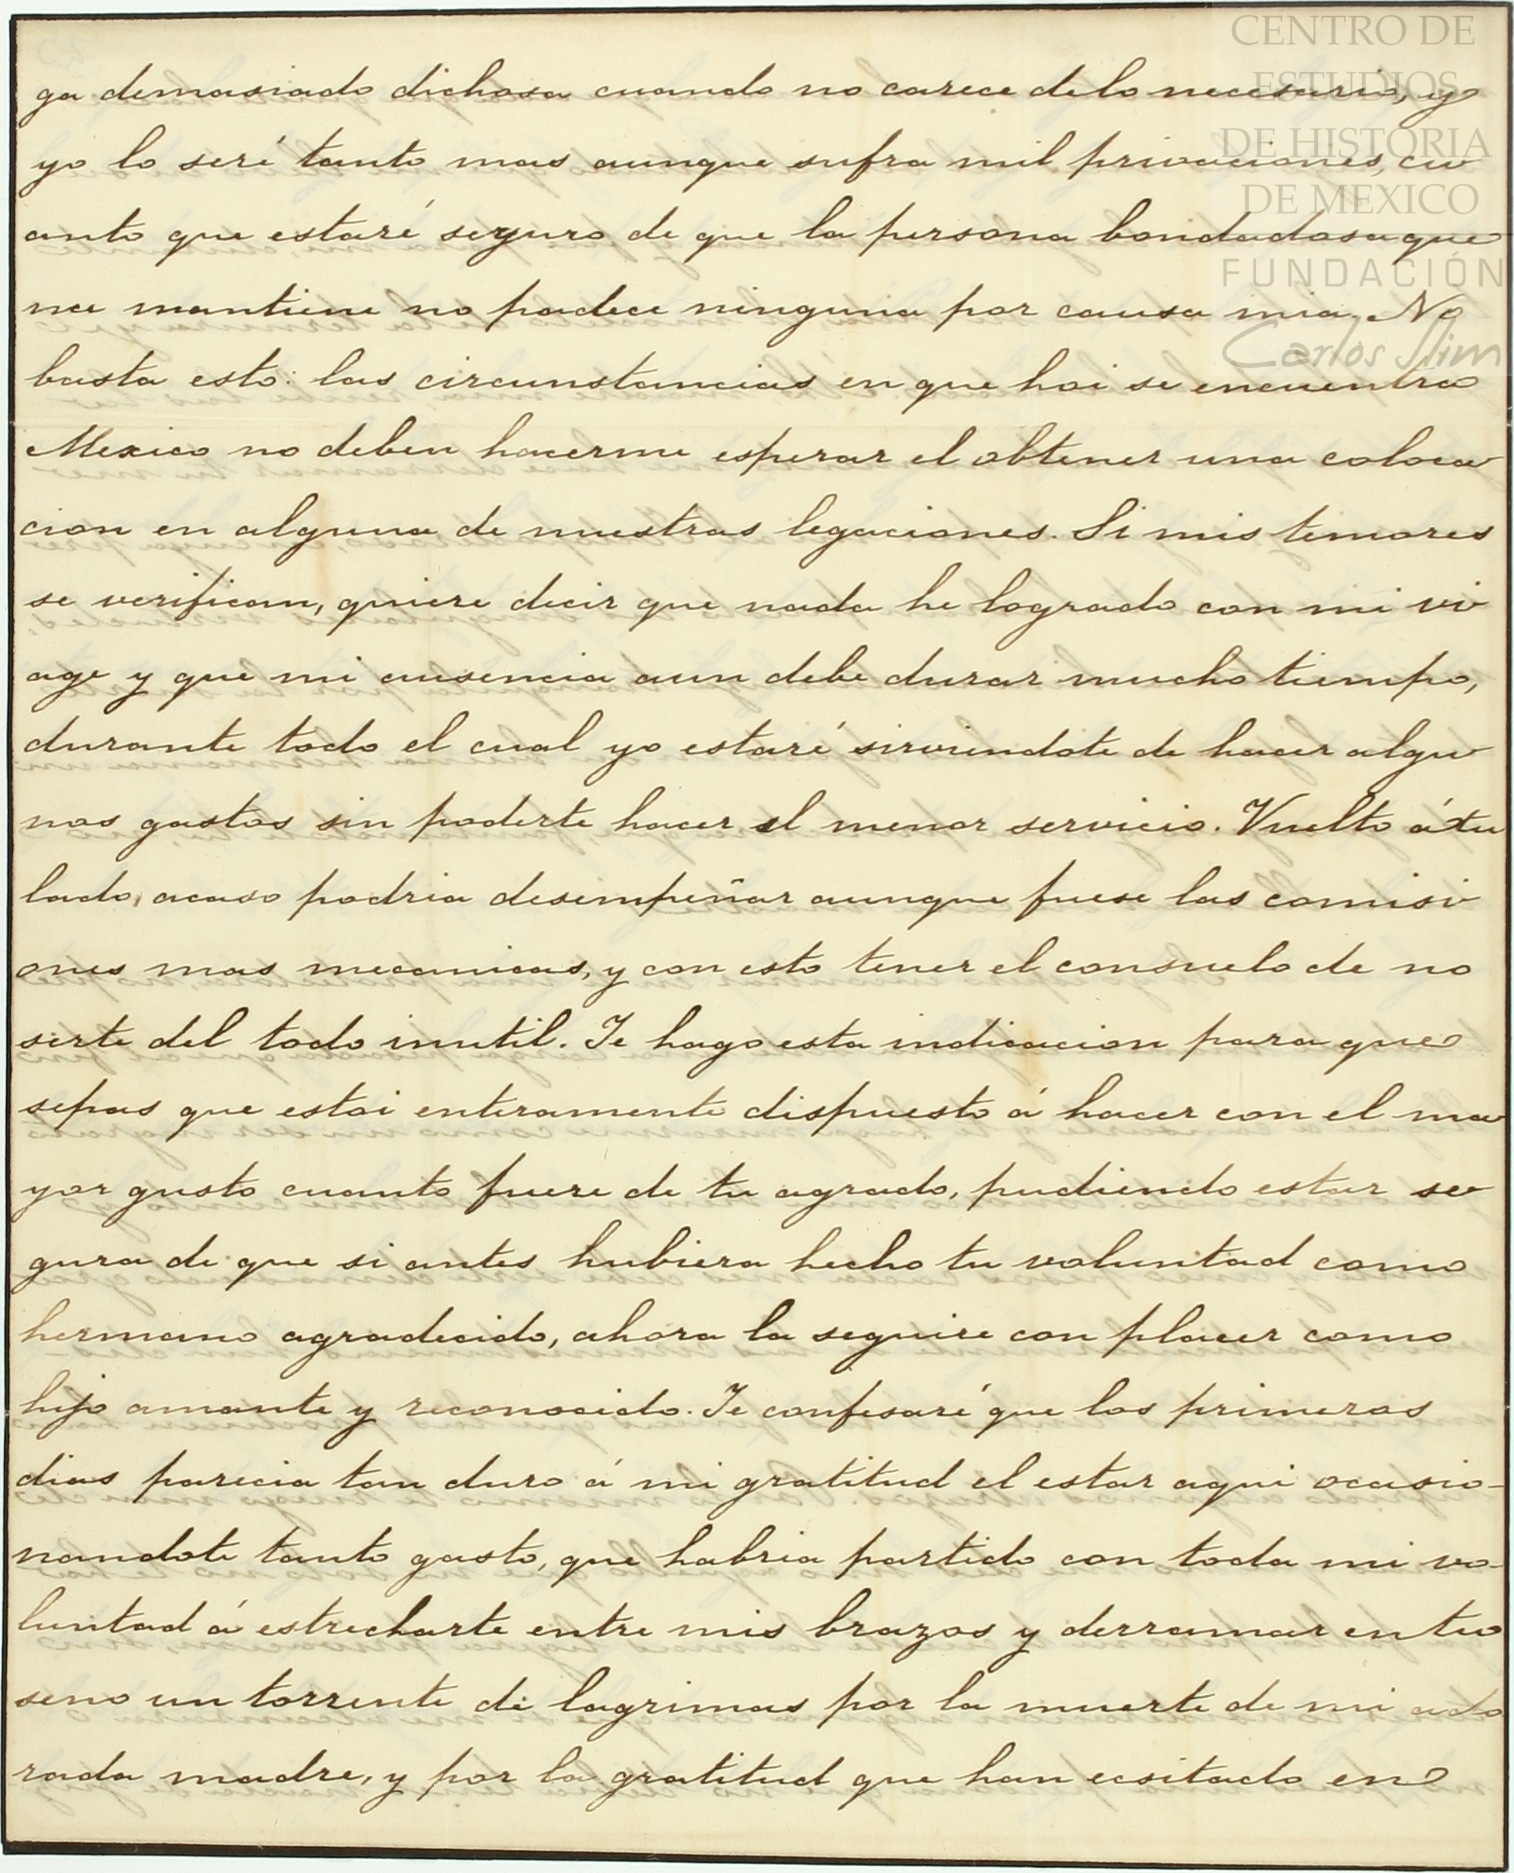 CENTRO DE
ESTUDIOS
DE HISTORIA
DE MEXICO
FUNDACIÓN
Carlos Slim
ga demasiado dichosa cuando no carece de lo necesario, y
yo lo seré tanto mas aunque sufra mil privaciones, cu
anto que estaré seguro de que la persona bondadosa que
me mantiene no padece ninguna por causa mia. No
basta esto: las circunstancias en que hoi se encuentra
Mexico no deben hacerme esperar el obtener una coloca
cion en alguna de nuestras legaciones. Si mis temores
se verifican, quiere decir que nada he logrado con mi vi
age y que mi ausencia aun debe durar mucho tiempo,
durante todo el cual yo estaré sirviendote de hacer algu
nos gastos sin poderte hacer el menor servicio. Vuelto á tu
lado, acaso podria desempeñar aunque fuese las comisi
ones mas mecanicas, y con esto tener el consuelo de no
serte del todo inutil. Te hago esta indicacion para que
sepas que estoi enteramente dispuesto á hacer con el ma
yor gusto cuanto fuere de tu agrado, pudiendo estar se
gura de que si antes hubiera hecho tu voluntad como
hermano agradecido, ahora la seguire con placer como
hijo amante y reconocido. Te confesaré que los primeros
dias parecia tan duro á mi gratitud el estar aqui ocasio-
nandote tanto gasto, que habria partido con toda mi vo-
luntad á estrecharte entre mis brazos y derramar en tu
seno un torrente de lagrimas por la muerte de mi ado
rada madre, y por la gratitud que han ecsitado en